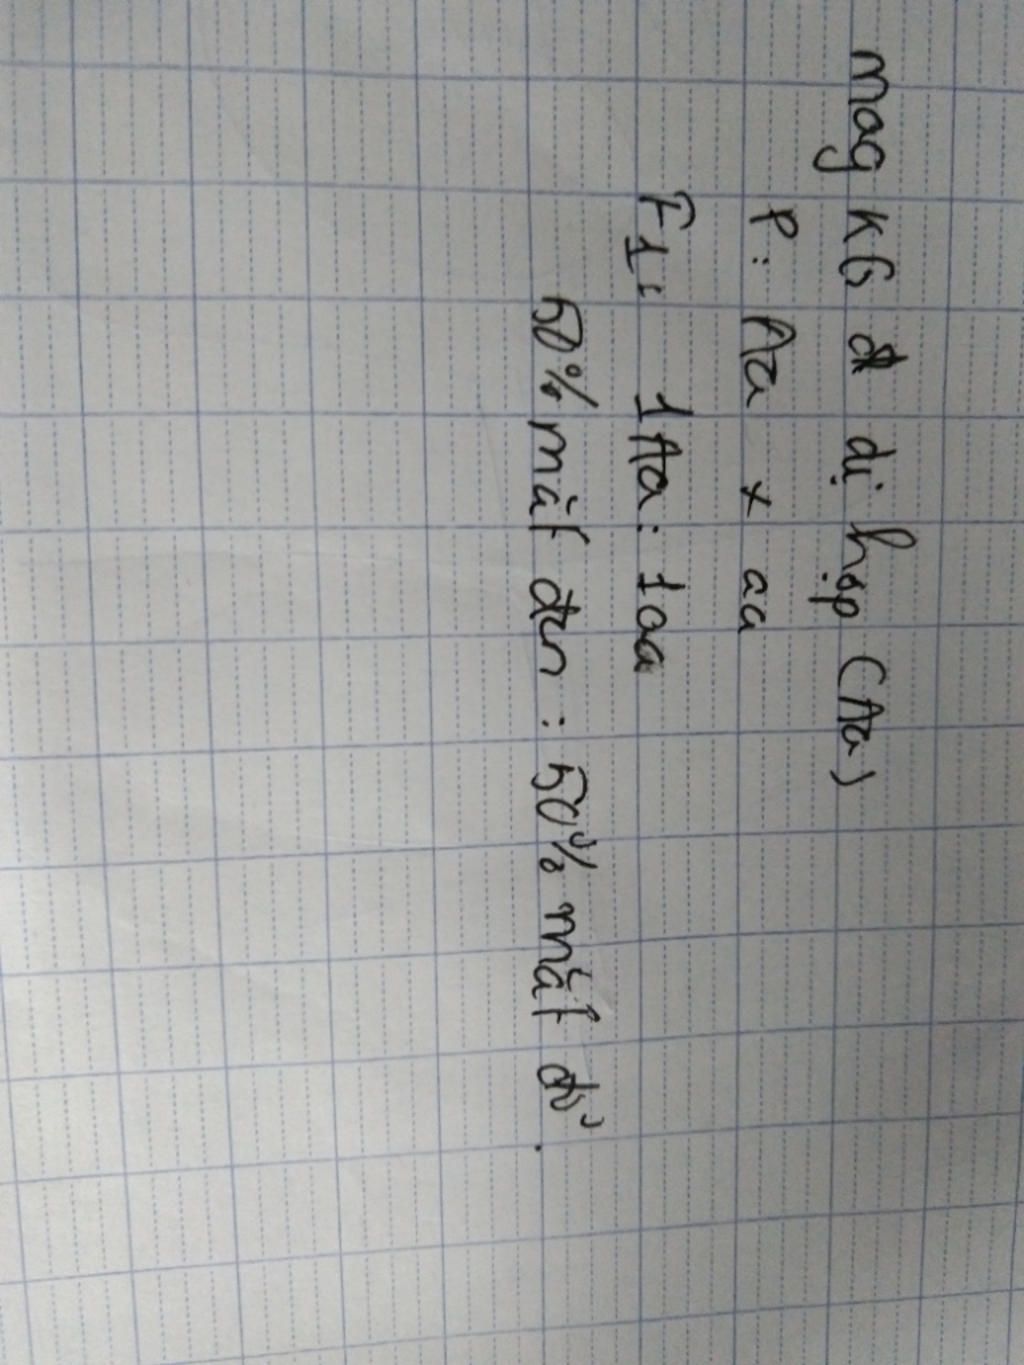 mag KG dị hợp (Aa)
P: Aa x aa
F1: 1Aa: 1aa
50% mắt đen : 50% mắt đỏ.